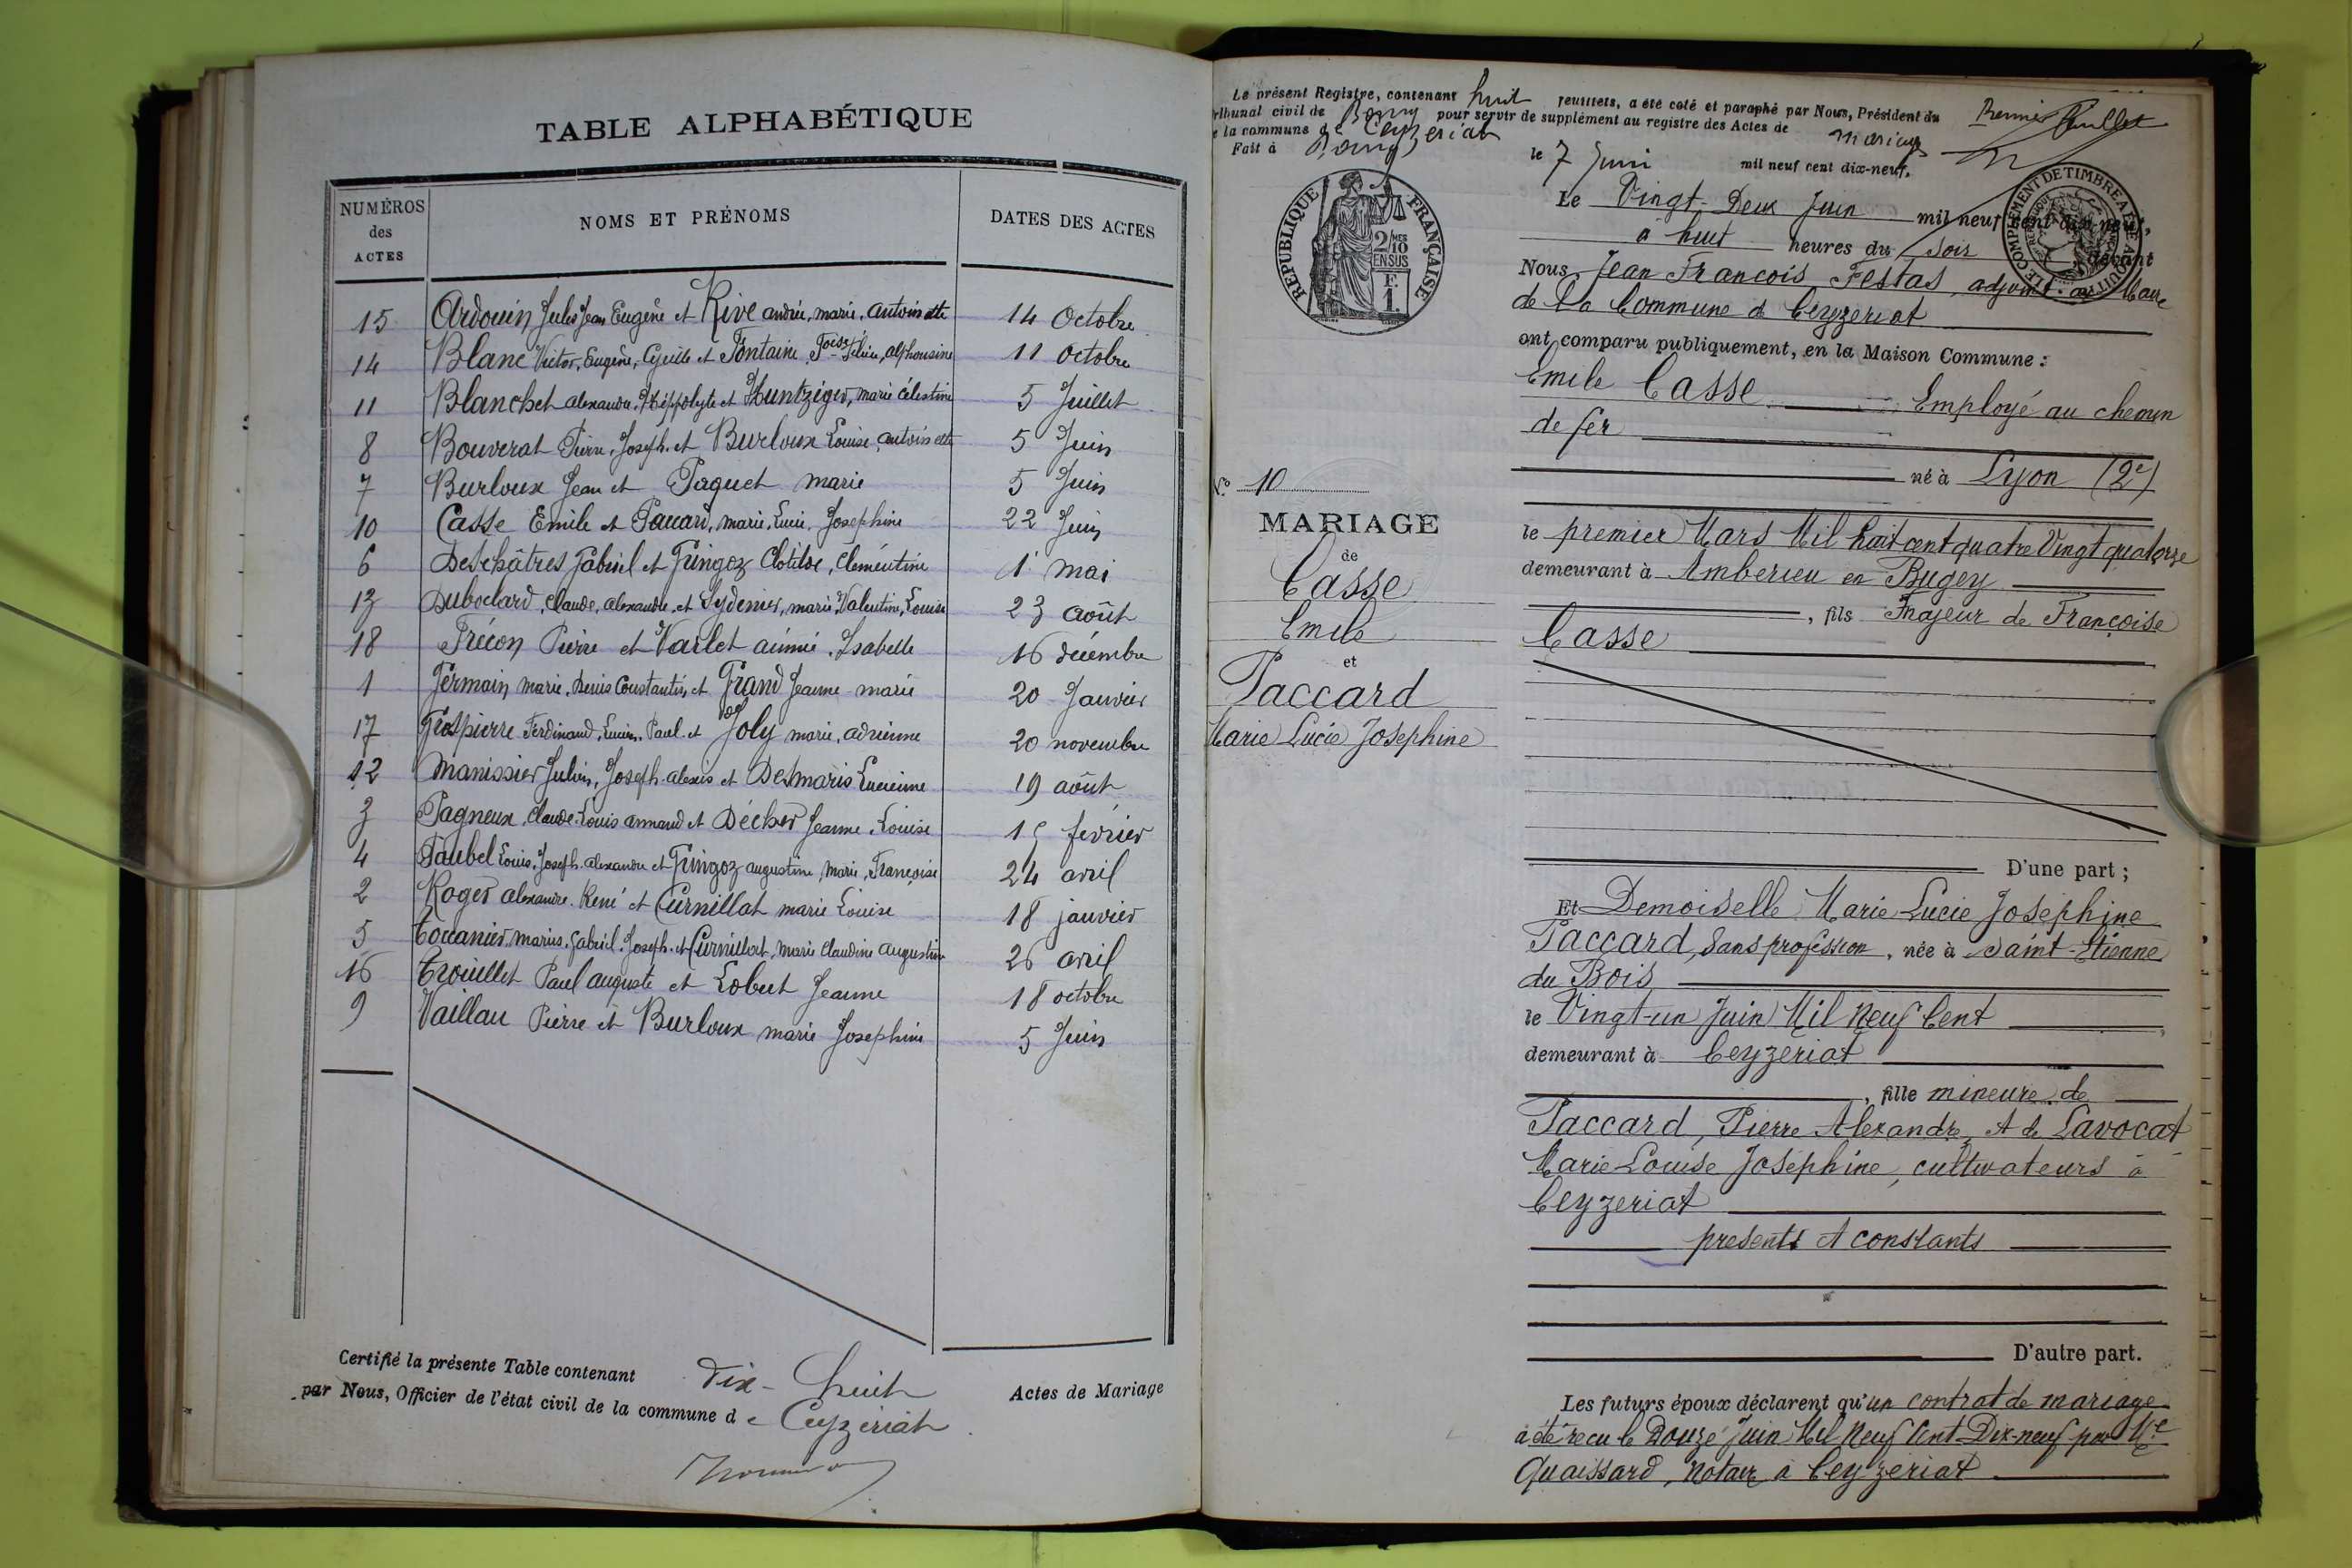 TABLE ALPHABÉTIQUE
NUMÉROS des ACTES
NOMS ET PRÉNOMS
DATES DES ACTES
15 Ardouin Jules Jean Eugène et Rive andrée, marie, antoinette 14 Octobre
14 Blanc Victor, Eugène, Cyrille et Fontaine Foise Félicie, alphonsine 11 octobre
11 Blanchet alexandre, Hippolyte et Huntziger, marie célestine 5 Juillet
8 Bouverat Pierre, Joseph. et Burloux Louise, antoinette 5 Juin
7 Burloux Jean et Paquet marie 5 Juin
10 Casse Emile et Paccard, marie, Lucie, Josephine 22 Juin
6 Deschâtres Gabriel et Gringoz Clotilde, Clémentine 1 mai
13 Duboclard, Claude, alexandre, et Sydenier, marie, Valentine, Louise 23 août
18 Frécon Pierre et Varlet aimée, Isabelle 16 décembre
1 Germain marie, Denis Constantin, et Grand Jeanne marie 20 Janvier
17 Grospierre Ferdinand, Lucien, Paul et Joly marie, adrienne 20 novembre
12 Manissier Julien, Joseph alexis et Desmaris Lucienne 19 août
3 Pagneux, Claude Louis armand et Décher Jeanne, Louise 15 février
4 Paubel Louis, Joseph, alexandre et Gringoz augustine, Marie, Françoise 24 avril
2 Roger alexandre René et Curnillat marie Louise 18 janvier
5 Touanier, marius, Gabriel, Joseph, et Curnillat, Marie Claudine augustine 26 avril
16 Trouillet Paul auguste et Lobut Jeanne 18 octobre
9 Vaillau Pierre et Burloux marie Josephine 5 Juin
Certifié la présente Table contenant Dix-huit Actes de Mariage
par Nous, Officier de l'état civil de la commune de Ceyzériat
Le présent Registre, contenant huit feuillets, a été coté et paraphé par Nous, Président du
tribunal civil de Bourg pour servir de supplément au registre des Actes de mariage
e la commune de Ceyzeriat
Fait à Bourg le 7 Juin mil neuf cent dix-neuf.
Premier feuillet
RÉPUBLIQUE FRANÇAISE
2/MES 10 EN SUS
F. 1.
LE COMPLÉMENT DE TIMBRE A ÉTÉ ACQUITTÉ
N° 10
MARIAGE
de
Casse
Emile
et
Paccard
Marie Lucie Josephine
Le Vingt-Deux Juin mil neuf cent dix-neuf,
à huit heures du soir, devant
Nous Jean Francois Festas, adjoint au Maire
de la Commune de Ceyzeriat
ont comparu publiquement, en la Maison Commune :
Emile Casse Employé au chemin
de fer
né à Lyon (2e)
le premier Mars Mil huit cent quatre Vingt quatorze
demeurant à Amberieu en Bugey
, fils majeur de Françoise
Casse
D'une part ;
Et Demoiselle Marie Lucie Josephine
Paccard, Sans profession, née à Saint-Etienne
du Bois
le Vingt-un Juin Mil Neuf Cent
demeurant à Ceyzeriat
, fille mineure de
Paccard, Pierre Alexandre, et de Lavocat
Marie Louise Josephine, cultivateurs à
Ceyzeriat
presents et consants
D'autre part.
Les futurs époux déclarent qu'un contrat de mariage
a été recu le Douze Juin Mil Neuf Cent Dix-neuf par Me
Quaissard, Notaire à Ceyzeriat